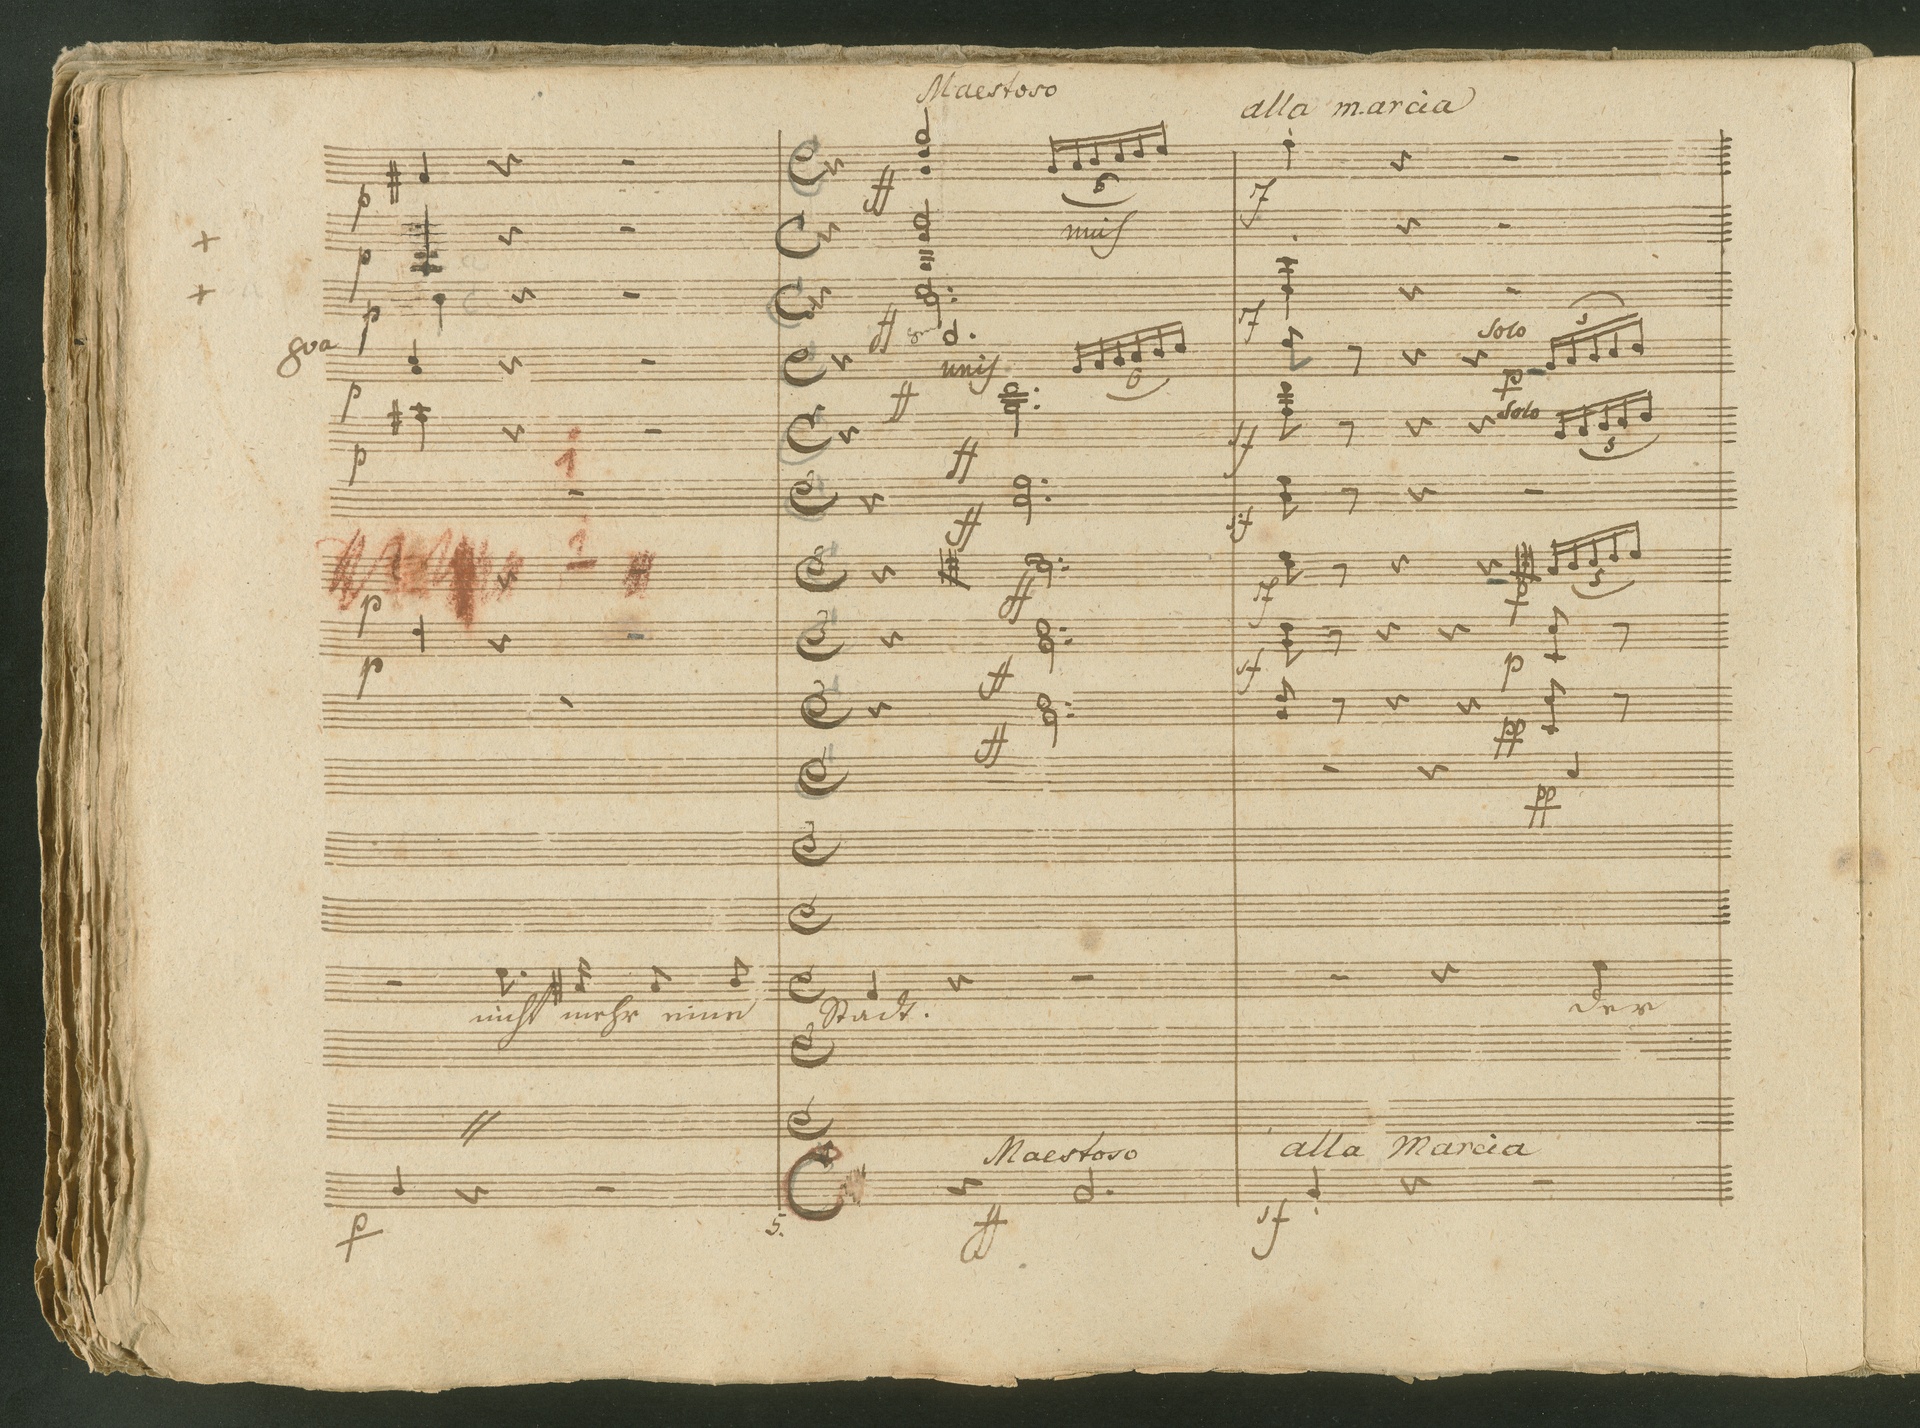 Maestoso
alla marcia
p
ff
6
f
p
unis
p
ff
f
8va
unis
Solo
5
p
ff
6
p
Solo
p
ff
sf
5
1
ff
sf
1
p
ff
f
5
p
ff
sf
p
ff
pp
pp
nicht mehr eine Stadt. der
Maestoso
alla Marcia
p
5.
ff
sf